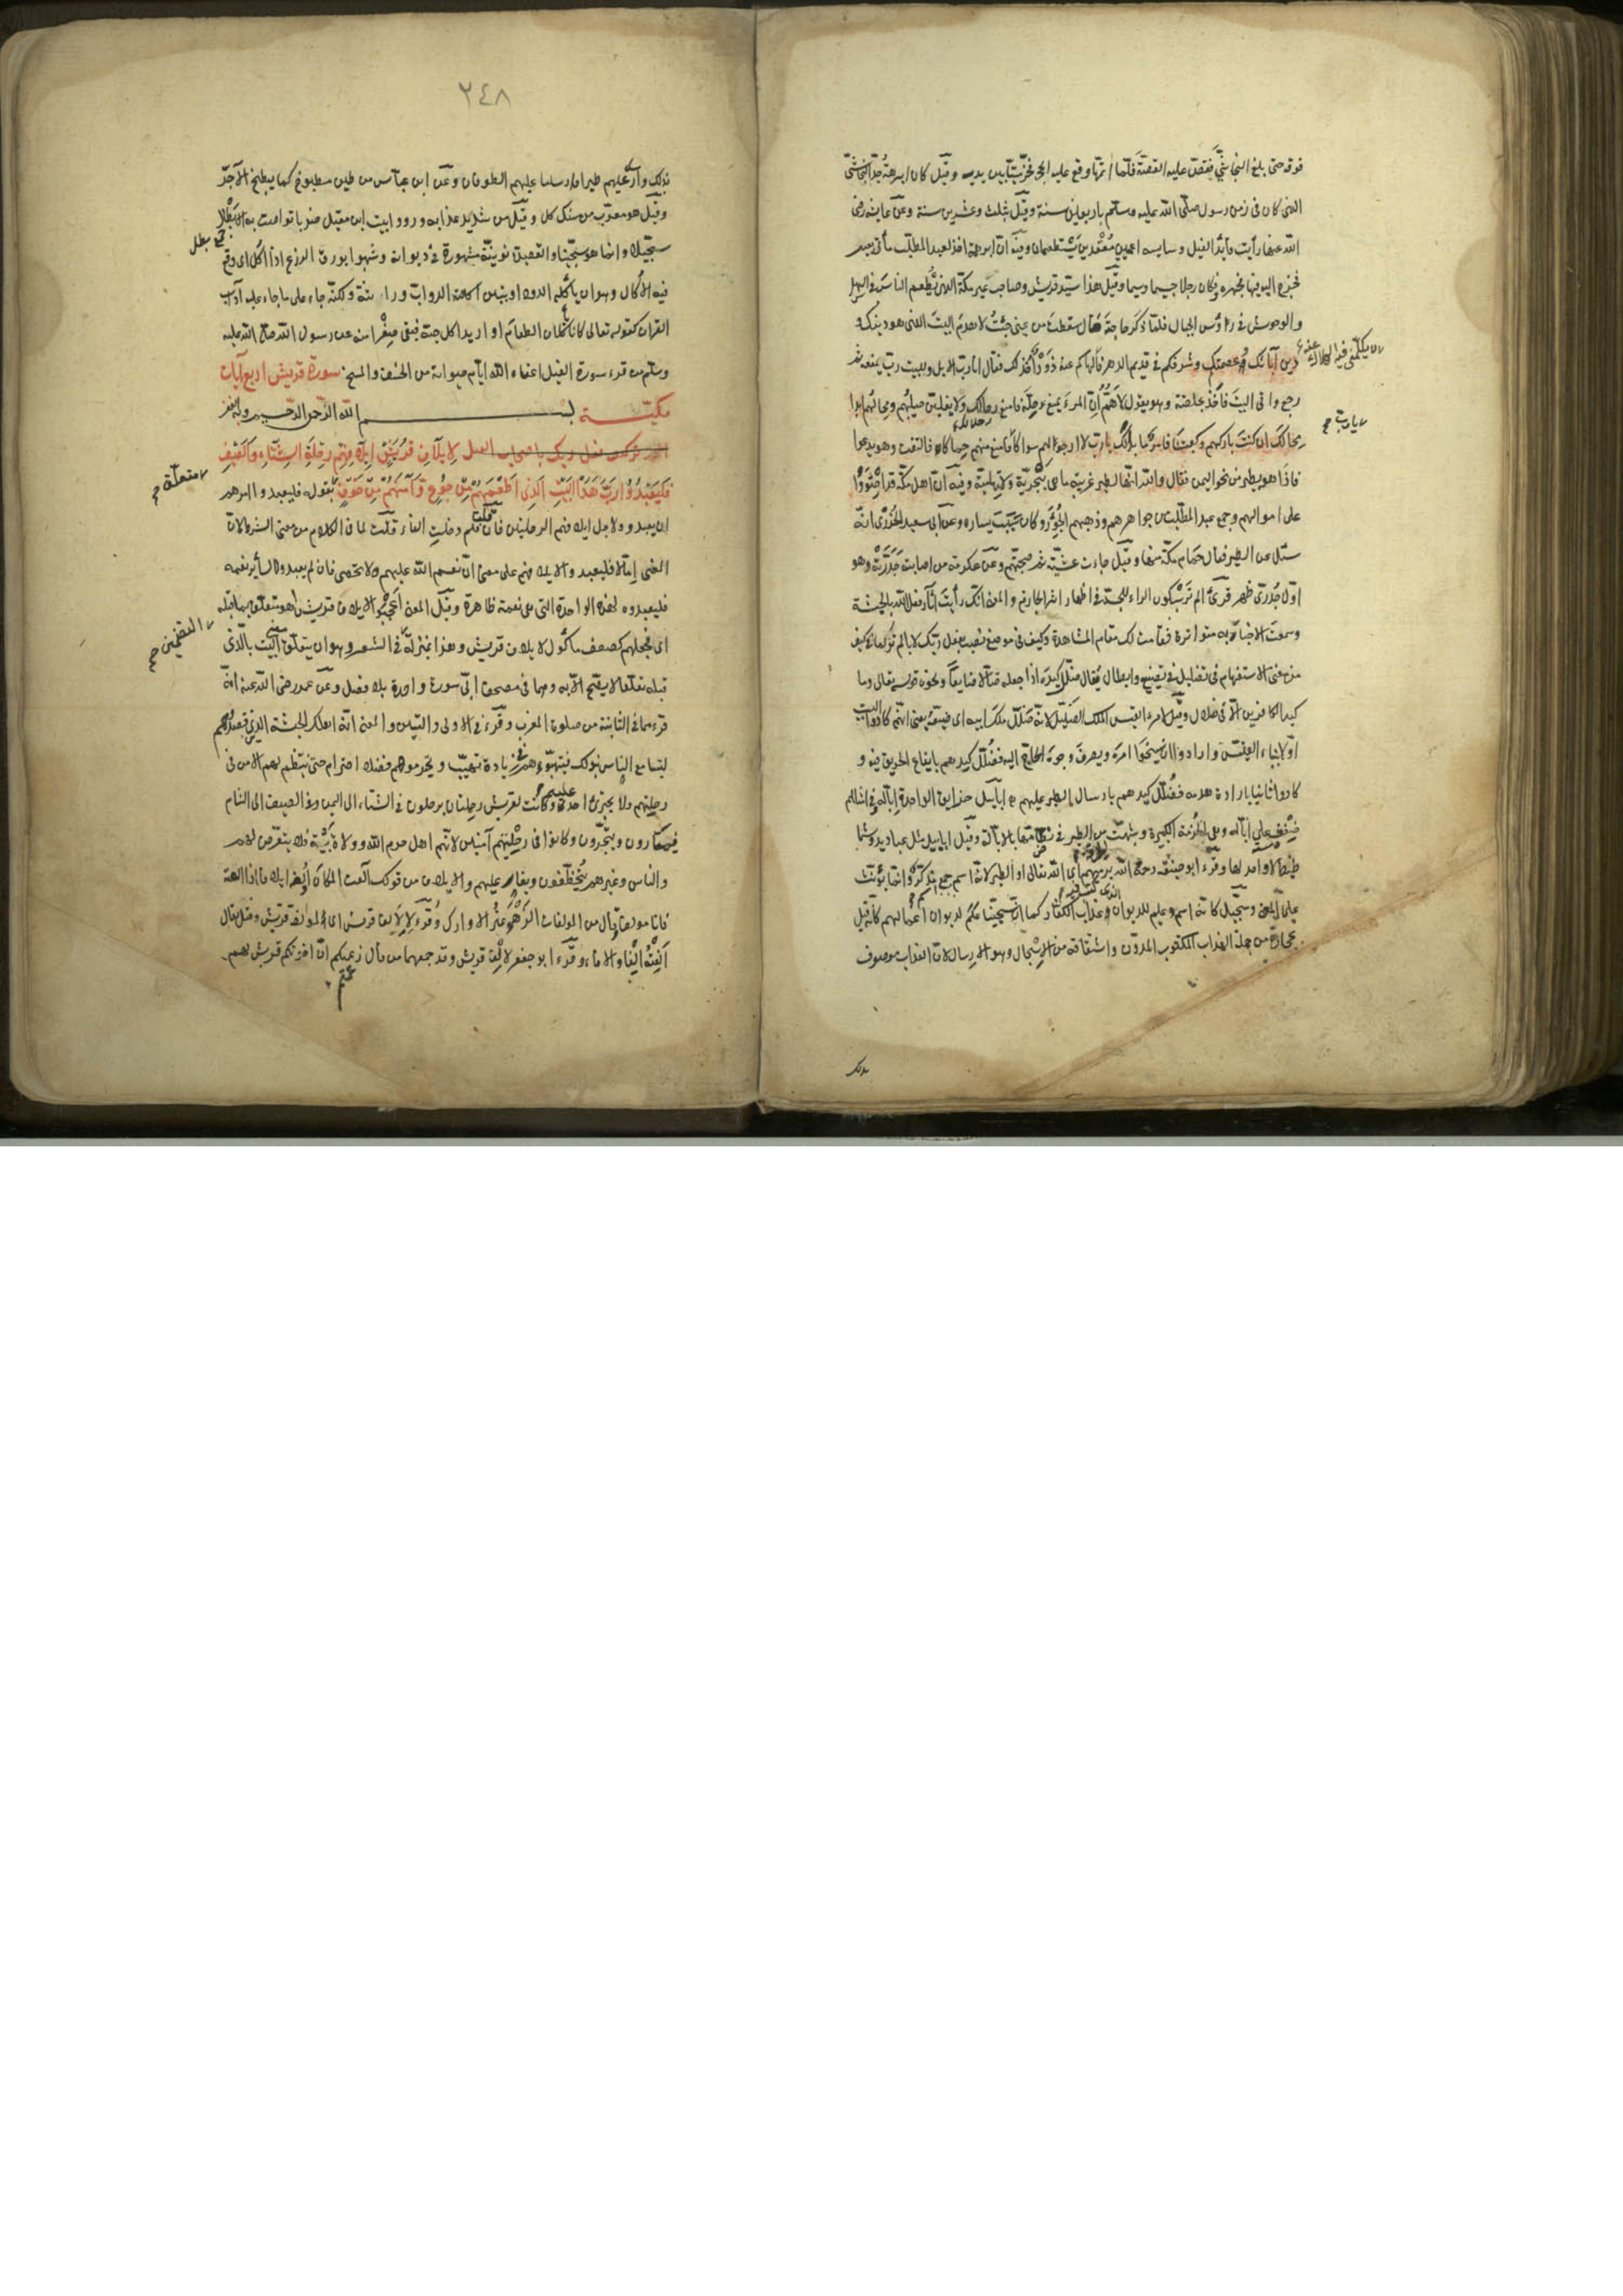 فوقه حتى بلغ النجاشي فقص عليه القصة فلما اتمها وقع عليه الحجر فخر ميتا بين يديه وقيل كان ابرهة جد النجاشي
الذى كان فى زمن رسول صلى الله عليه وسلم باربعين سنة وقيل بثلث وعشرين سنة وعن عايشه رضى
الله عنها رأيت قائد الفيل وسايسه اعميين مقعدين يستطعمان وفيه ان ابرهة اخذ لعبد المطلب مأتى بعير
فخرج اليه فيها فجهره وكان رجلا جسيما وسيما وقيل هذا سيد قريش وصاحب عير مكة الذى يطعم الناس فى السهل
والوحوش فى رؤس الجبال فلما ذكر حاجته قال سقطت من عينى جئت لاهدم البيت الذى هو دينك و
دين آبائك وعصمتكم وشرفكم فى قديم الدهر فالهاكم عنه ذود اخذ لك فقال انا رب الابل وللبيت رب يمنعه ثم
رجع واتى البيت فاخذ بحلقته وهو يقول لاهم ان المرء يمنع رحله فامنع رحالك ولا يغلبن صليبهم ومحالهم ابدا
محالك ان كنت تاركهم وكعبتنا فامر ما بدا لك يا رب لا ارجو لهم سواكا فامنع منهم حماكا فالتفت وهو يدعوا
فاذا هو بطير من نحو اليمن فقال والله انها لطير غريبة ما هى بنجدية ولا تهامية وفيه ان اهل مكة قد احتووا
على اموالهم وجمع عبد المطلب من جواهرهم وذهبهم الجور وكان سبب يساره وعن ابى سعيد الخدرى انه
سئل عن الطير فقال حمام مكة منها وقيل جاءت عشية ثم صبحتهم وعن عكرمة من اصابت جدرته وهو
اول جدرى ظهر قرئ الم تر بسكون الراء للجد فى اظهار اثر الجازم والمعنى انك رأيت آثار فعل الله بالحبشة
وسمعت الاخبار به متواترة فقامت لك مقام المشاهدة وكيف فى موضع نصب بفعل ربك لا بالم تر لما فى كيف
من معنى الاستفهام فى تضليل فى تضييع وابطال يقال ضلل كيده اذا جعله ضالا ضايعا ونحوه قوله تعالى وما
كيد الكافرين الا فى ضلال وقيل لامرء القيس الملك الضليل لانه ضلل ملك ابيه اى ضيعه يعنى انهم كادوا البيت
اولا ببناء القليس وارادوا ان ينسخوا امره ويصرف وجوه الحاج اليه فضلل كيدهم بايقاع الحريق فيه و
كادوا ثانيا بارادة هدمه فضلل كيدهم بارسال الطير عليهم ابابيل حزايق الواحدة ابالة وفى امثالهم
ضغث على ابالة وهى الحزمة الكبيرة وشبهت من الطير فى تضامها بالابالة وقيل ابابيل مثل عباديد وشما
طيط لا واحد لها وقرء ابو حنيفة رحمه الله يرميهم اى الله تعالى او الطير لانه اسم جمع مذكر وانما يؤنث
على المعنى وسجيل كانه اسم علم للديوان الذى كتب فيه وعذاب الكفار كما ان سجينا علم لديوان اعمالهم كأنه قيل
بحجارة من جملة العذاب المكتوب المدون واشتقاقه من الاسجال وهو الارسال لان العذاب موصوف
لا يكلمنى فيه
يا رب صح
بذلك
٢٤٨
بذلك وارسل عليهم طيرا فارسلنا عليهم الطوفان وعن ابن عباس من طين مطبوخ كما يطبخ الآجر
وقيل هو معرب من سنك كل وقيل من شديد عذابه ورووا بيت ابن مقبل ضربا تواصت به الابطال
سجيلا وانما هو سجينا والقصيدة نونية مشهورة فى ديوانه وشبهوا بورق الزرع اذا اكل اى وقع
فيه الاكال وهو ان يأكله الدود او بتبن اكلته الدواب وراثته ولكنه جاء على ما جاء عليه آداب
القرآن كقوله تعالى كانا يأكلان الطعام او اريد اكل حبه فبقى صفرا منه عن رسول الله صلى الله عليه
وسلم من قرء سورة الفيل اعفاه الله ايام حيوته من الخسف والمسخ سورة قريش اربع آيات
مكية بسم الله الرحمن الرحيم
لإيلاف قريش ايلافهم رحلة الشتاء والصيف
فليعبدوا رب هذا البيت الذى اطعمهم من جوع وآمنهم من خوف بقوله فليعبدوا امرهم
ان يعبدوه لاجل ايلافهم الرحلتين فان قلت فلم دخلت الفاء قلت لما فى الكلام من معنى الشرط لان
المعنى اما لا فليعبدوه لايلافهم على معنى ان نعم الله عليهم لا تحصى فان لم يعبدوه لسائر نعمه
فليعبدوه لهذه الواحدة التى هى نعمة ظاهرة وقيل المعنى اعجبوا لايلاف قريش وقيل هو متعلق بما قبله
اى فجعلهم كعصف مأكول لايلاف قريش وهذا بمنزلة فى الشعر وهو ان يتعلق معنى البيت بالذى
قبله تعلقا لا يصح الا به وهما فى مصحف ابى سورة واحدة بلا فصل وعن عمر رضى الله عنه انه
قرءهما فى الثانية من صلوة المغرب وقرء فى الاولى والتين والمعنى انه اهلك الحبشة الذين قصدوهم
ليتسامع الناس بذلك فيتهيبوهم زيادة تهيب ويحترموهم فضل احترام حتى ينتظم لهم الامن فى
رحلتهم فلا يجترئ احد عليهم وكانت لقريش رحلتان يرحلون فى الشتاء الى اليمن وفى الصيف الى الشام
فيمتارون ويتجرون وكانوا فى رحلتهم آمنين لانهم اهل حرم الله وولاة بيته فلا يتعرض لهم
والناس وغيرهم يتخطفون ويغار عليهم والايلاف من قولك آلفت المكان اولفه ايلافا اذا الفته
فانا مؤلف قال من المؤلفات الزهو غير الاوارك وقرء لإلاف قريش اى لمؤالفة قريش وقيل يقال
الفته الفا والافا وقرء ابو جعفر لإلف قريش وقد جمعهما من قال زعمتم ان اخوتكم قريش لهم
صح بطل
متعلق صح
التضمين صح